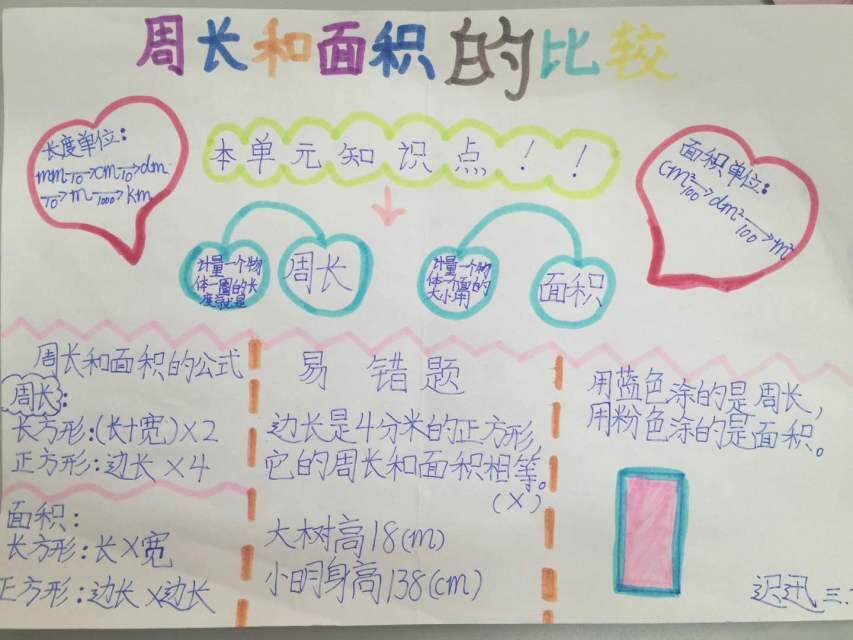 周长和面积的比较
长度单位:
mm 10→cm 10→dm
10→m 1000→km
本单元知识点!!
面积单位:
cm² 100→dm²
100→m²
计量一个物
体一圈的长
度就是
周长
计量一个物
体一个面的
大小用
面积
周长和面积的公式
周长:
长方形:(长+宽)×2
正方形:边长×4
面积:
长方形:长×宽
正方形:边长×边长
易错题
边长是4分米的正方形,
它的周长和面积相等。
(×)
大树高18(m)
小明身高138(cm)
用蓝色涂的是周长,
用粉色涂的是面积。
迟迅 三.